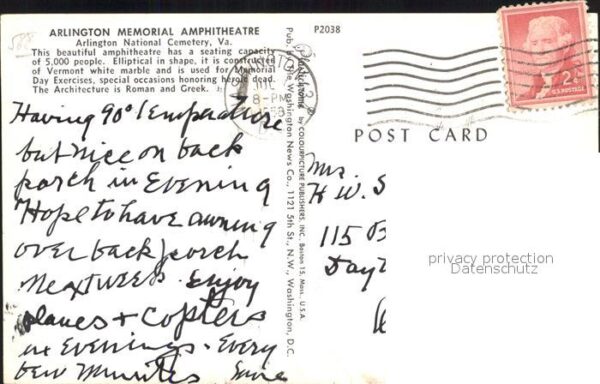 ARLINGTON MEMORIAL AMPHITHEATRE
Arlington National Cemetery, Va.
This beautiful amphitheatre has a seating capacity
of 5,000 people. Elliptical in shape, it is constructed
of Vermont white marble and is used for Memorial
Day Exercises, special occasions honoring heroic dead.
The Architecture is Roman and Greek.
Having 90° temperature
but nice on back
porch in Evening
Hope to have awning
over back porch
next week. Enjoy
planes + copters
in Evenings. Every
few minutes.
P2038
Plastichrome by COLOURPICTURE PUBLISHERS, INC., Boston 15, Mass. U.S.A.
Pub. by the Washington News Co., 1121 5th St., N.W., Washington, D.C.
8-PM
2¢
U.S. POSTAGE
POST CARD
Mrs.
H W. S
115
Day
privacy protection
Datenschutz